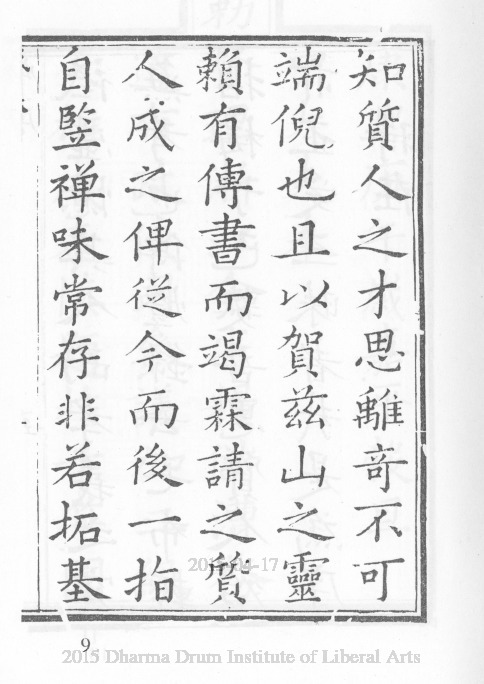 知質人之才思離奇不可
端倪也且以賀茲山之靈
賴有傳書而竭霖請之質
人成之俾從今而後一指
自竪禪味常存非若拓基
9
2015 Dharma Drum Institute of Liberal Arts